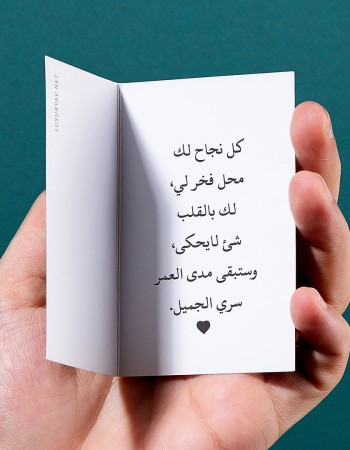 كل نجاح لك
محل فخر لي،
لك بالقلب
شئ لايحكى،
وستبقى مدى العمر
سري الجميل.